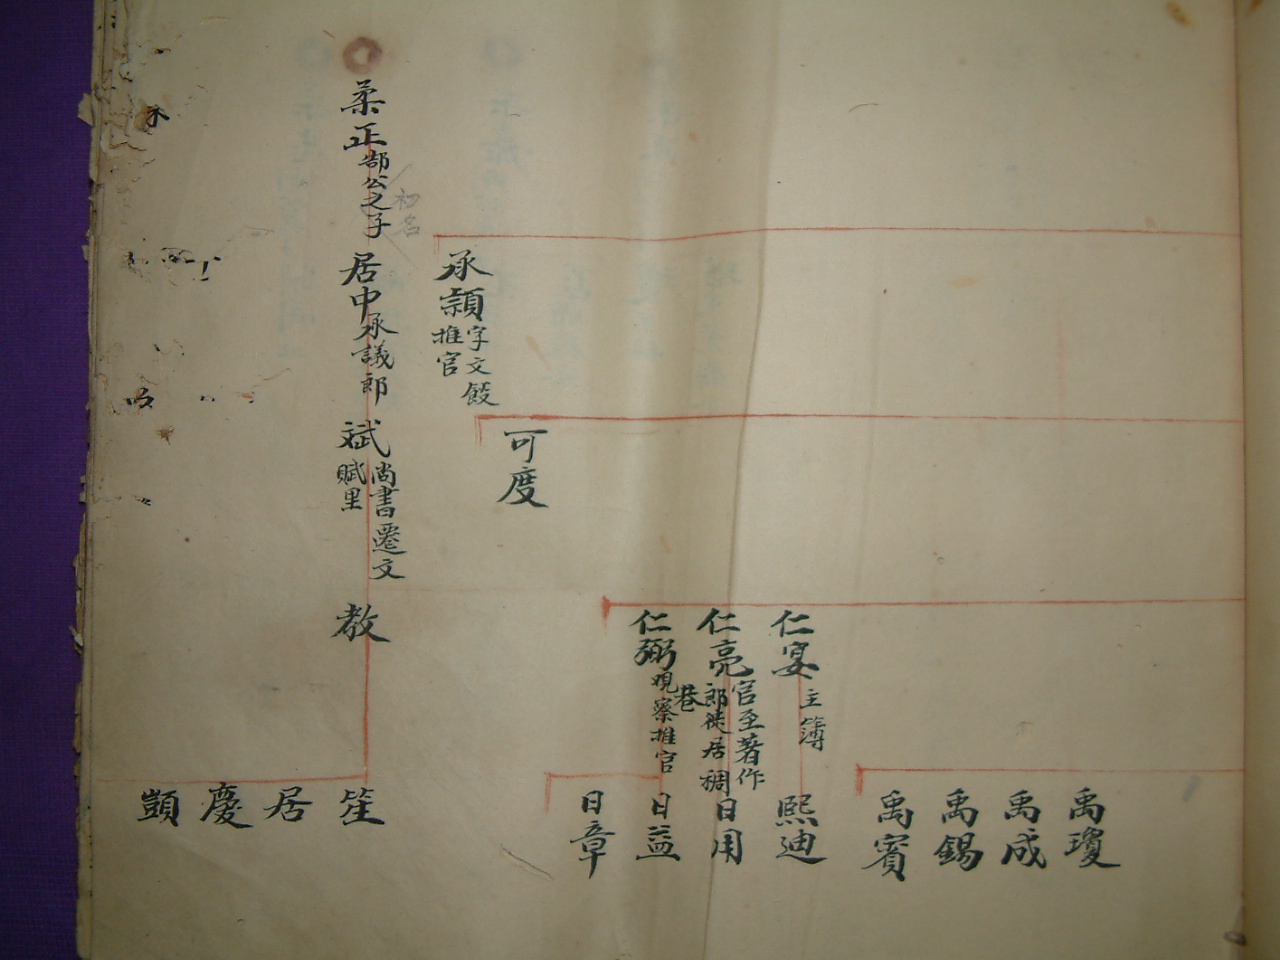 承頴字文餀
推官
可度
仁宴主簿
仁亮官至著作
郎徙居稠
巷
仁弼观察推官
禹瓊
禹成
禹錫
禹賓
熙迪
日用
日益
日章
柔正郜公之子
初名
居中承議郎
斌尚書遷文
賦里
教
笙
居
慶
顗